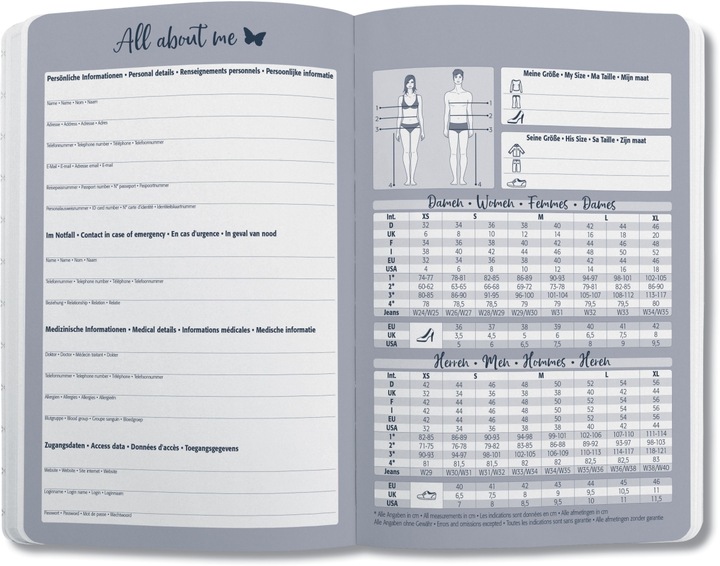 All about me
Persönliche Informationen • Personal details • Renseignements personnels • Persoonlijke informatie
Name • Name • Nom • Naam
Adresse • Address • Adresse • Adres
Telefonnummer • Telephone number • Téléphone • Telefoonnummer
E-Mail • E-mail • Adresse email • E-mail
Reisepassnummer • Passport number • N° passeport • Paspoortnummer
Personalausweisnummer • ID card number • N° carte d'identité • Identiteitskaartnummer
Im Notfall • Contact in case of emergency • En cas d'urgence • In geval van nood
Name • Name • Nom • Naam
Telefonnummer • Telephone number • Téléphone • Telefoonnummer
Beziehung • Relationship • Relation • Relatie
Medizinische Informationen • Medical details • Informations médicales • Medische informatie
Doktor • Doctor • Médecin traitant • Dokter
Telefonnummer • Telephone number • Téléphone • Telefoonnummer
Allergien • Allergies • Allergies • Allergieën
Blutgruppe • Blood group • Groupe sanguin • Bloedgroep
Zugangsdaten • Access data • Données d'accès • Toegangsgegevens
Website • Website • Site internet • Website
Loginname • Login name • Login • Loginnaam
Passwort • Password • Mot de passe • Wachtwoord
1
2
3
4
1
2
3
4
Meine Größe • My Size • Ma Taille • Mijn maat
Seine Größe • His Size • Sa Taille • Zijn maat
Damen • Women • Femmes • Dames
Int. XS S M L XL
D 32 34 36 38 40 42 44 46
UK 6 8 10 12 14 16 18 20
F 34 36 38 40 42 44 46 48
I 38 40 42 44 46 48 50 52
EU 32 34 36 38 40 42 44 46
USA 4 6 8 10 12 14 16 18
1* 74-77 78-81 82-85 86-89 90-93 94-97 98-101 102-105
2* 60-62 63-65 66-68 69-72 73-78 79-81 82-85 86-90
3* 80-85 86-90 91-95 96-100 101-104 105-107 108-112 113-117
4* 78 78,5 78,5 79 79 79,5 79,5 80
Jeans W24/W25 W26/W27 W28/W29 W29/W30 W31 W32 W33 W34/W35
EU 36 37 38 39 40 41 42
UK 3,5 4,5 5 6 6,5 7,5 8
USA 5 6 6,5 7,5 8 9 9,5
Herren • Men • Hommes • Heren
Int. XS S M L XL
D 42 44 46 48 50 52 54 56
UK 32 34 36 38 40 42 44 46
F 42 44 46 48 50 52 54 56
I 42 44 46 48 50 52 54 56
EU 42 44 46 48 50 52 54 56
USA 32 34 36 38 38 40 42 44
1* 82-85 86-89 90-93 94-98 99-101 102-106 107-110 111-114
2* 71-75 76-78 79-82 83-85 86-88 89-92 93-97 98-103
3* 90-93 94-97 98-101 102-105 106-109 110-113 114-117 118-121
4* 81 81,5 81,5 82 82 82,5 82,5 83
Jeans W29 W30/W31 W31/W32 W33/W34 W34/W35 W35/W36 W36/W38 W38/W40
EU 40 41 42 43 44 45 46
UK 6,5 7,5 8 9 9,5 10,5 11
USA 7 8 8,5 9,5 10 11 11,5
* Alle Angaben in cm • All measurements in cm • Les indications sont données en cm • Alle afmetingen in cm
Alle Angaben ohne Gewähr • Errors and omissions excepted • Toutes les indications sont sans garantie • Alle afmetingen zonder garantie